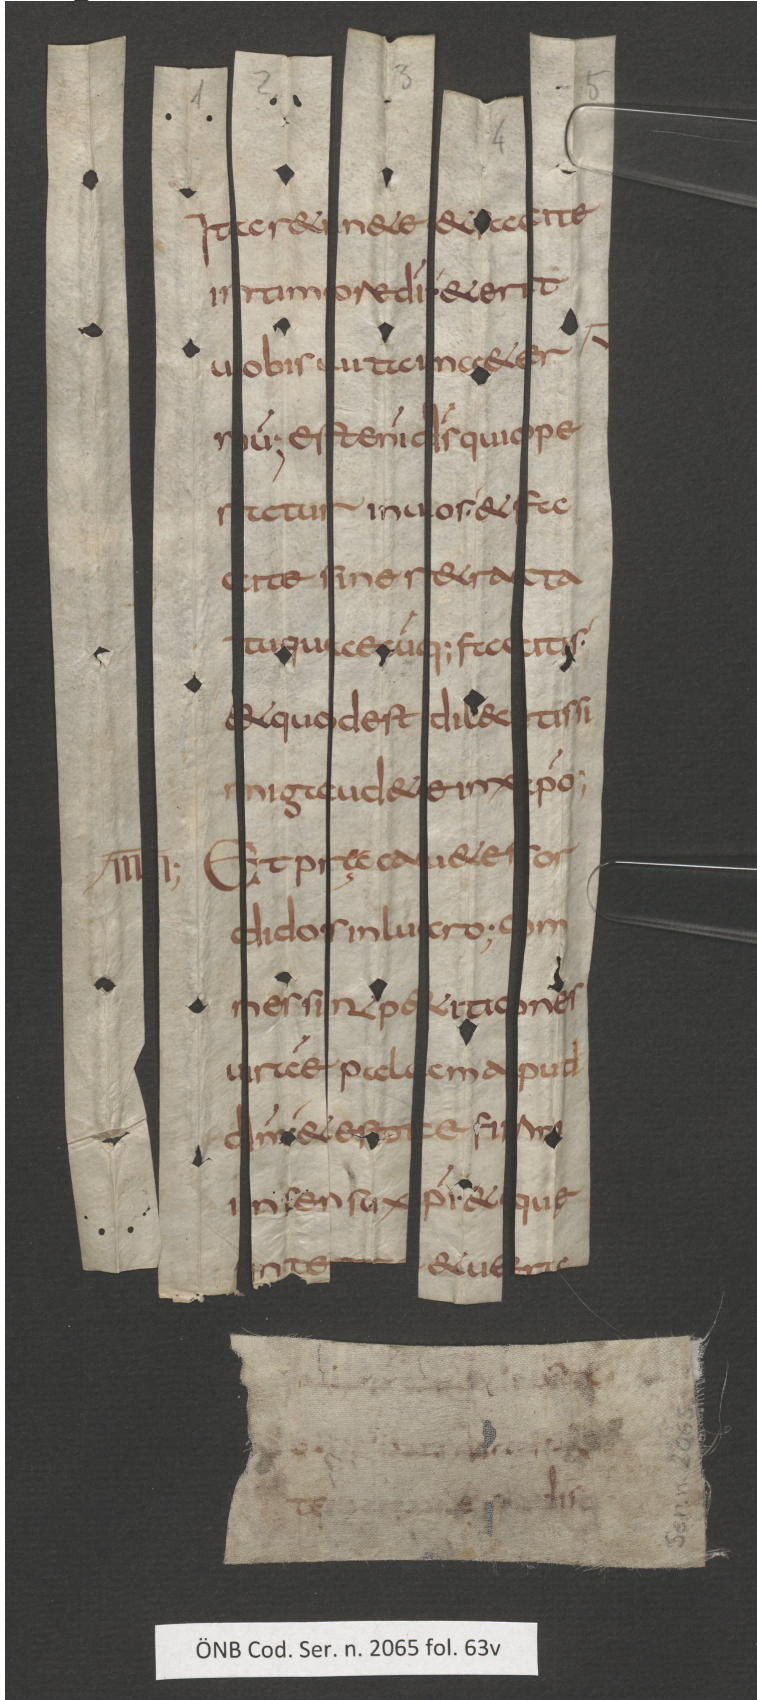 1 2 3 4 5
Ita r&in&e & facite
in timore di̅· & erit
uobis uita in a&er
nu̅; est eni̅ ds̅ qui ope
ratur in uos· & fa
cite sine r&racta
tu quaecu̅q; facitis·
& quod est dilectissi
mi gaud&e in xp̅o;
IIII; Et pręcau&e sor
didos in lucro; om
nes sint p&itiones
ur̅ae palam apud
dm̅· & estote firmi
in sensu xp̅i· & que
inte & uera
te dis
Ser. n. 2065
ÖNB Cod. Ser. n. 2065 fol. 63v